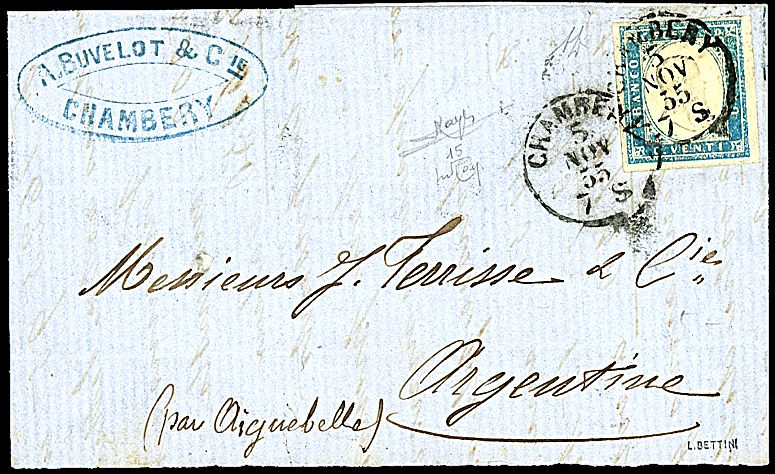 A. BUVELOT & CIE
CHAMBERY
CHAMBERY
5
NOV
55
7 S
CHAMBERY
5
NOV
55
7 S
FRANCO
VENTI
15
Messieurs J. Terrisse & Cies
Argentine
(par Aiguebelle)
L. BETTINI